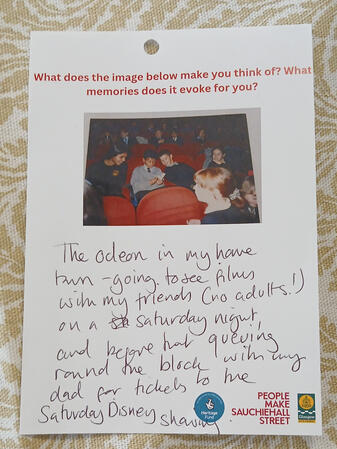 What does the image below make you think of? What
memories does it evoke for you?
The odeon in my home
town - going to see films
with my friends (no adults!)
on a Saturday night
and before that queuing
round the block with my
dad for tickets to the
Saturday Disney showing.
Heritage
Fund
PEOPLE
MAKE
SAUCHIEHALL
STREET
Glasgow